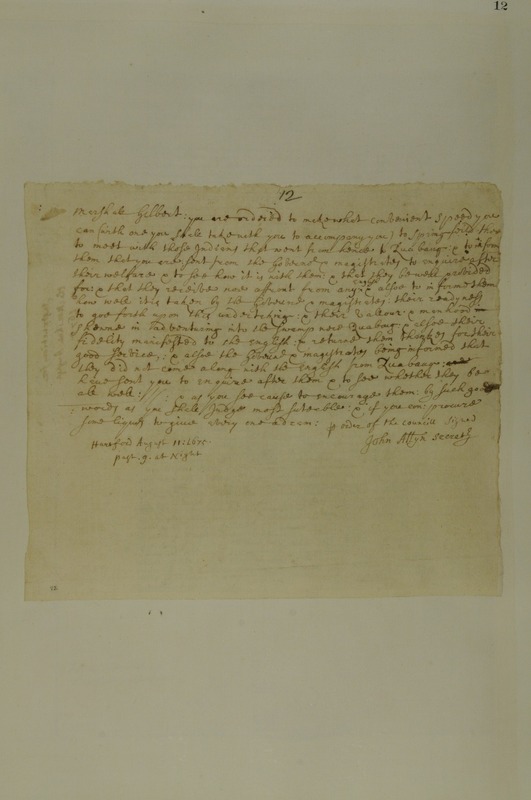 12
12
Marshall Gilbert: you are ordered to make what convenient speed you
can & with one you shall take with you to accompany you; to Springfeild there
to meet with those Indians that went from hence to Quabaug: & to inform
them that you are sent from the Governor & magistrates to enquire after
their wellfare & to see how it is with them: & that they be well provided
for: & that they receive noe affront from any English: & allso to informe them
how well it is taken by the Governor & magistrates: their readyness
to goe forth upon this undertaking: & their valour & manhood
shewne in Indeavouring into the swamp neer Quabaug & allso their
fidelity manifested to the English: & returne them thankes for their
good service: & allso the Governor & magistrates being informed that
they did not come along with the English from Quabaug:
have sent you to enquire after them & to see whether they be
all well: & as you see cause to encourage them: by such good
words as you shall Judge most suteable: & if you can procure
some liquors to give every one a dram: p order of the councill signed
Hartford August 11: 1675: John Allyn Secretry
past 9 at Night
12